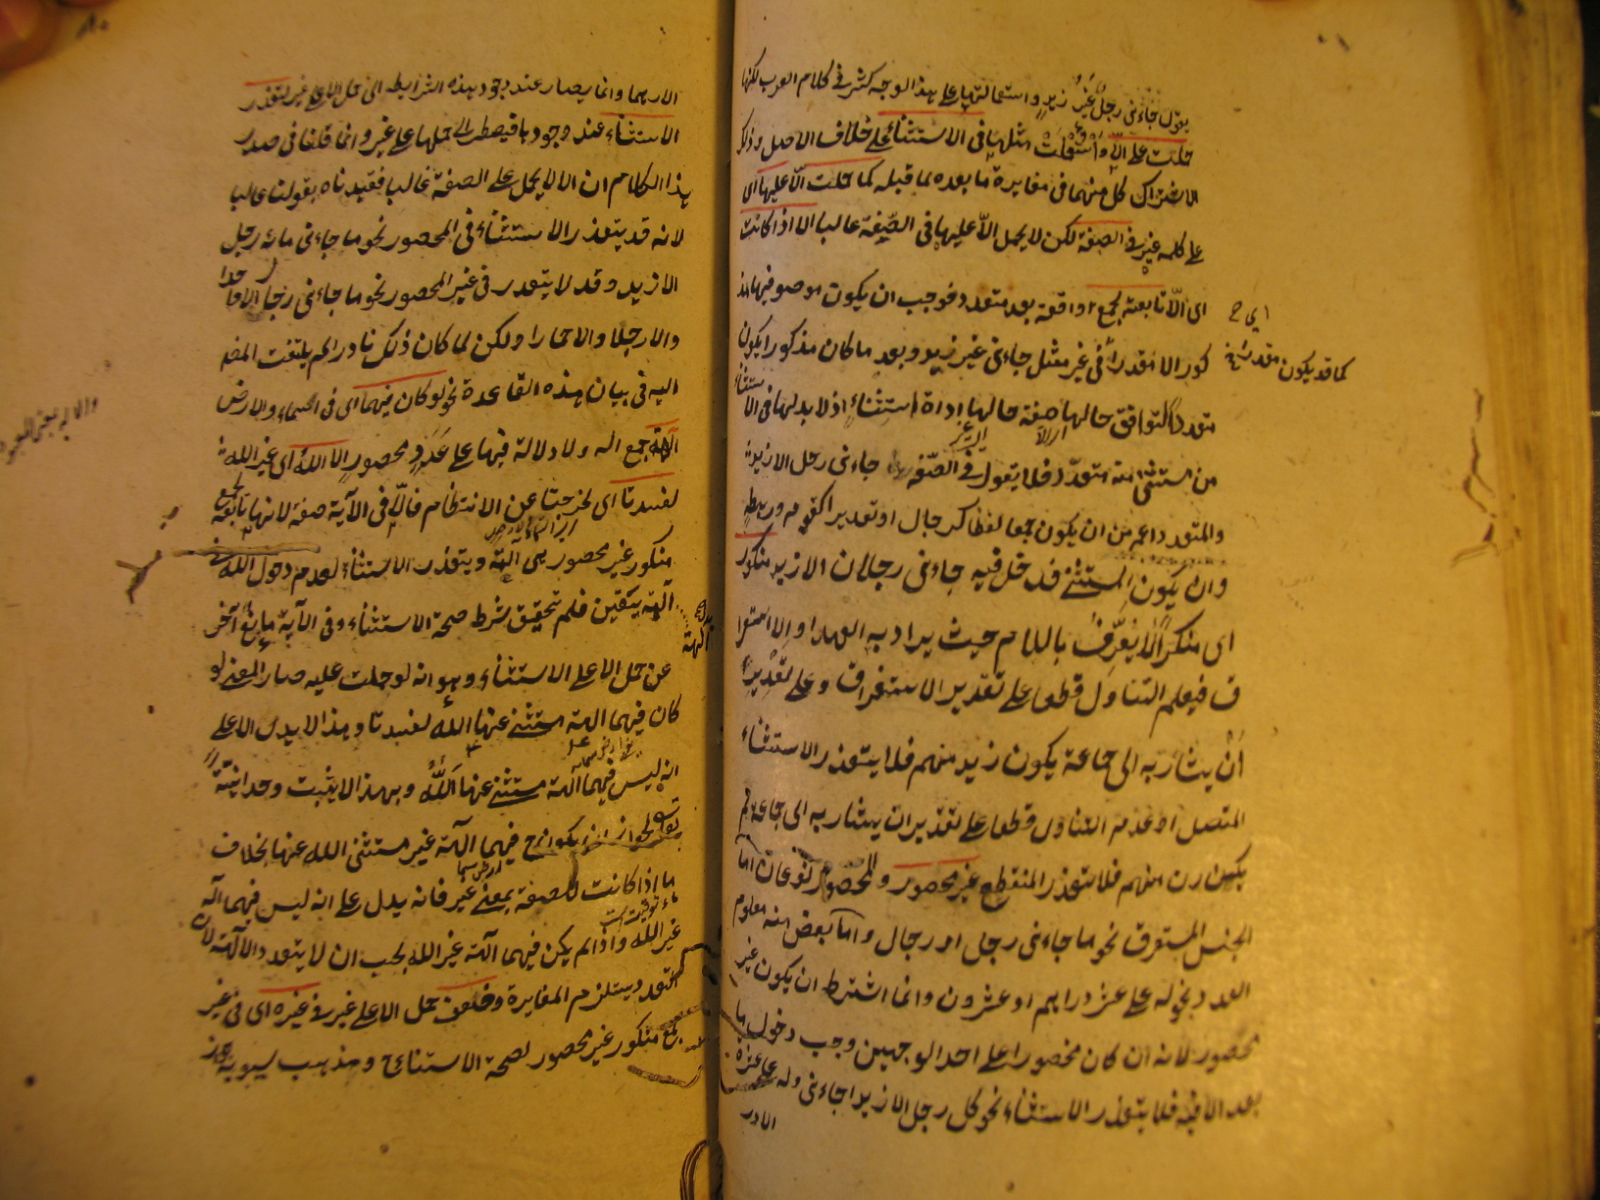 يقول جاءنى رجل غير زيد واستعمالها على هذا الوجه كثير فى كلام العرب لكنها
حملت على الّا واستعملت مثلها فى الاستثناء على خلاف الاصل وذلك
لاشتراك كل منهما فى مغايرة ما بعده لما قبله كما حملت الّا عليها اى
على كلمه غير فى الصفة لكن لا يحمل الّا عليها فى الصّفة غالبا الا اذا كانت
اى الّا تابعة لجمع واقعة بعد متعدد فوجب ان يكون موصوفها مذ
كورا لا مقدرا فى غير مثل جاءنى غير زيد وبعد ما كان مذكورا يكون
كما قد يكون مقدرا فى
متعددا لتوافق حالها صفة حالها اداة استثناء اذ لا بد لها فى الاستثناء
من مستثنى منه متعدد فلا يقول فى الصّفة جاءنى رجل الا زيد
والمتعدد اعم من ان يكون جمعا لفظا كرجال او تقديرا كقوم ورهط
وان يكون المستثنى فدخل فيه جاءنى رجلان الا زيد منكور
اى منكر لا يعرّف باللام حيث يراد به العهد او الاستغرا
ق فيعلم التناول قطعا على تقدير الاستغراق وعلى تقدير
أن يشار به الى جماعة يكون زيد منهم فلا يتعذر الاستثناء
المتصل او عدم التناول قطعا على تقدير ان يشار به الى جماعة لم
يكن زيد منهم فلا يتعذر المنقطع غير محصور والمحصور نوعان اما
الجنس المستغرق نحو ما جاءنى رجل او رجال واما بعض منه معلوم
العدد نحو له على عشرة دراهم او عشرون وانما اشترط ان يكون غير
محصور لانه ان كان محصورا على احد الوجهين وجب دخول ما
بعد الا فيه فلا يتعذر الاستثناء نحو كل رجل الا زيدا جاءنى وله على عشرة
الا در
الا درهما وانما يصار عند وجود هذه الشرايط الى حمل الا على غير لتعذر
الاستثناء عند وجودها فيضطر الى حملها على غير وانما قلنا فى صدر
هذا الكلام ان الا لا يحمل على الصفة غالبا فقيدناه بقولنا غالبا
لانه قد يتعذر الاستثناء فى المحصور نحو ما جاءنى مائة رجل
الا زيد وقد لا يتعذر فى غير المحصور نحو ما جاءنى رجال الا واحدا
والا رجلا والا حمارا ولكن لما كان ذلك نادرا لم يلتفت المصنف
اليه فى بيان هذه القاعدة نحو لو كان فيهما اى فى السماء والارض
آلهة جمع اله ولا دلالة فيها على عدد محصور الا الله اى غير الله
لفسدتا اى لخرجتا عن الانتظام فالّا فى الآية صفة لانها تابعة لجمع
منكور غير محصور هى آلهة ويتعذر الاستثناء لعدم دخول الله فى
آلهة بيقين فلم يتحقق شرط صحة الاستثناء وفى الآية مانع آخر
عن حمل الا على الاستثناء وهو انه لو حملت عليه صار المعنى لو
كان فيهما الهة مستثنى عنها الله لفسدتا وهذا لا يدل الا على
انه ليس فيهما آلهة مستثنى عنها الله وبهذا لا يثبت وحدانيته
تعالى لجواز ان يكون فيهما آلهة غير مستثنى الله عنها بخلاف
ما اذا كانت للصفة بمعنى غير فانه يدل على انه ليس فيهما آلهة
غير الله واذا لم يكن فيهما آلهة غير الله يجب ان لا يتعدد الآلهة لان
التعدد يستلزم المغايرة وضعف حمل الا على غير فى غيره اى فى غير
جمع منكور غير محصور لصحة الاستثناء ومذهب سيبويه جواز